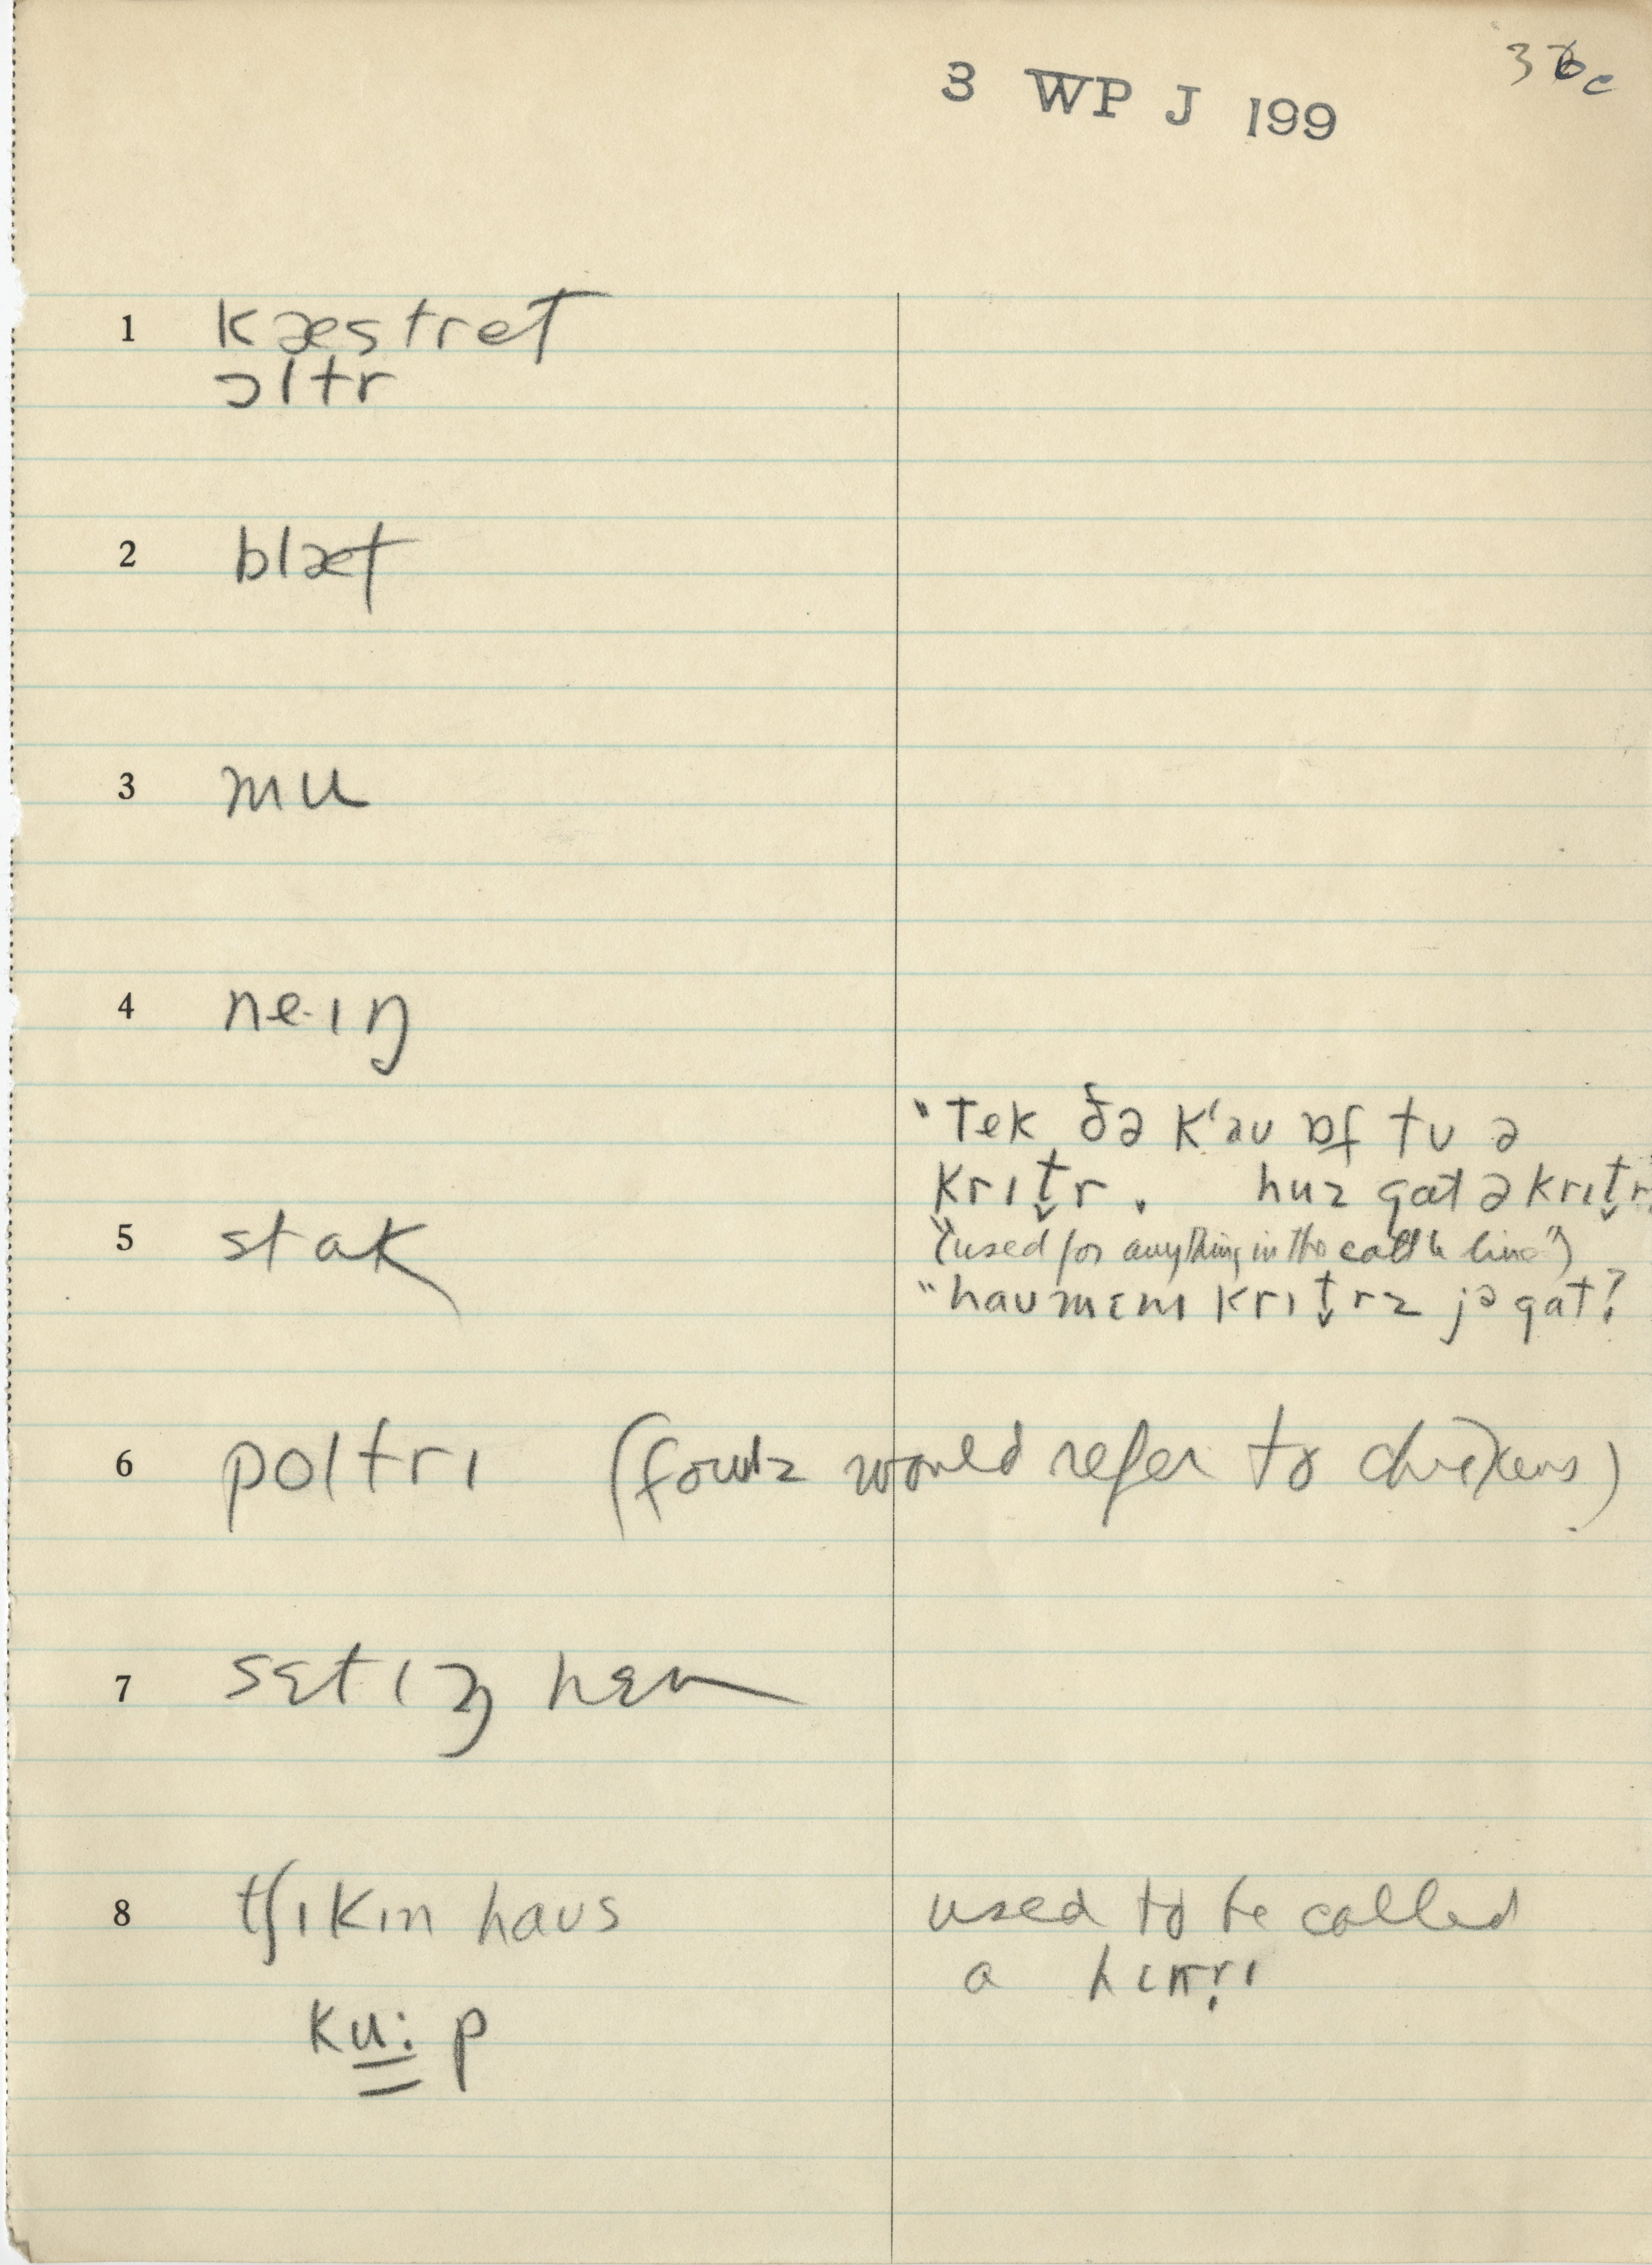 3 WP J 199
1 kæstret
ɔltr
2 blæt
3 mu
4 ne·ɪŋ
"tek ðə kʻəu ɒf tu ə
krɪt̬r. huz gat ə krɪt̬r
5 stak
("used for anything in the cattle line")
"hau mɛnɪ krɪt̬rz jə gat?
6 poltrɪ (fowlz would refer to chickens)
7 sɛtɪŋ hɛn
8 tʃɪkɪn haus used to be called
a hɛnrɪ
ku:p